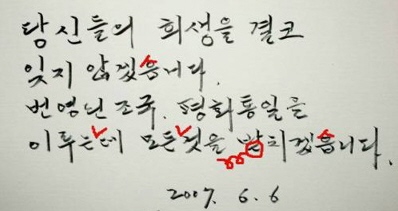 당신들의 희생을 결코
잊지 않겠읍니다.
번영된 조국, 평화통일을
이루는데 모든것을 받치겠읍니다.
2007. 6. 6